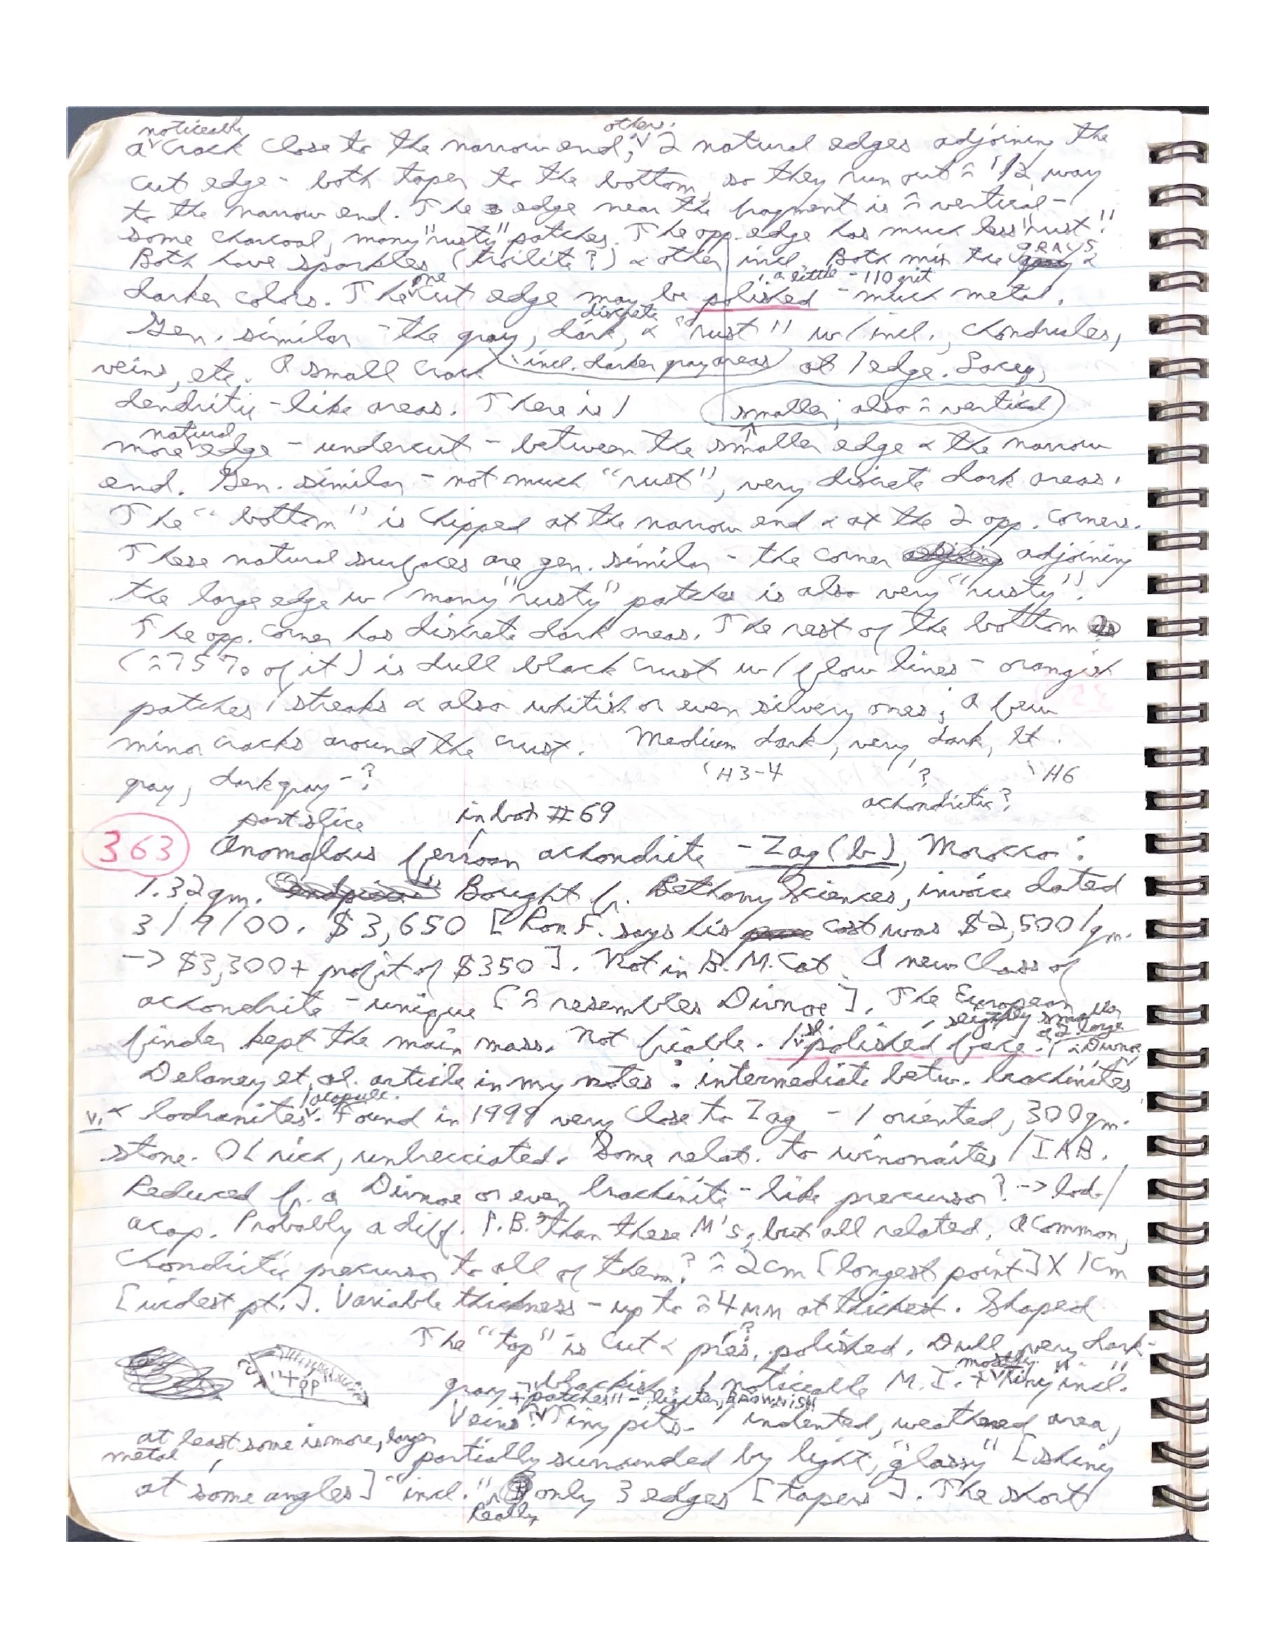 noticeably other.
a crack close to the narrow end; 2 natural edges adjoining the
cut edge - both taper to the bottom, so they run out ≈ 1/2 way
to the narrow end. The edge near the fragment is ≈ vertical -
some charcoal, many "rusty" patches. The opp. edge has much less "rust".
Both have sparkles (troilite?) & other incl. Both mix the GRAYS &
one a little - 110 grit
darker colors. The cut edge may be polished - much metal.
discrete
Gen. similar - the gray, dark, & "rust" w/ incl., chondrules,
veins, etc. A small crack (incl. darker gray areas) at 1 edge. Lacey,
dendritic-like areas. There is 1 smaller; also ≈ vertical
natural
more edge - undercut - between the smaller edge & the narrow
end. Gen. similar - not much "rust", very discrete dark areas.
The "bottom" is chipped at the narrow end & at the 2 opp. corners.
These natural surfaces are gen. similar - the corner adjoining
the large edge w/ many "rusty" patches is also very "rusty".
The opp. corner has discrete dark areas. The rest of the bottom
(≈75% of it) is dull black crust w/ flow lines - orangish
patches / streaks & also whitish or even silvery ones; A few
minor cracks around the crust. Medium dark, very dark, lt.
gray, dark gray - ? H3-4 ? H6
achondritic?
part slice in box #69
363 Anomalous ferroan achondrite - Zag (b), Morocco:
1.32gm. Bought fr. Bethany Sciences, invoice dated
3/9/00. $3,650 [Ron F. says his cost was $2,500/gm.
-> $3,300 + profit of $350]. Not in B.M. Cat. A new class of
achondrite - unique [≈ resembles Divnoe]. The European
slightly smaller
finder kept the main mass. Not friable. 1 sl. polished face.
Delaney et. al. article in my notes: intermediate betw. brachinites
acapulc.
v. & lodranites. Found in 1999 very close to Zag - 1 oriented, 300gm.
stone. OL rich, unbrecciated. Some relat. to winonaites / IAB.
Reduced fr. a Divnoe or even brachinite-like precursor? -> lod./
acap. Probably a diff. P.B. than these M's, but all related. A common,
chondritic precursor to all of them? ≈ 2cm [longest point] X 1cm
[widest pt.]. Variable thickness - up to ≈ 4mm at thickest. Shaped
The "top" is cut & pres. polished. Dull, very dark-
mostly
gray - blackish. 1 noticeable M.I. + tiny "incl."
+ "patches" - lighter, BROWNISH
Veins Tiny pits - 1 indented, weathered area,
at least some is more, larger
metal
partially surrounded by light, "glassy" [shiny
at some angles] "incl." only 3 edges [tapers]. The short
Really